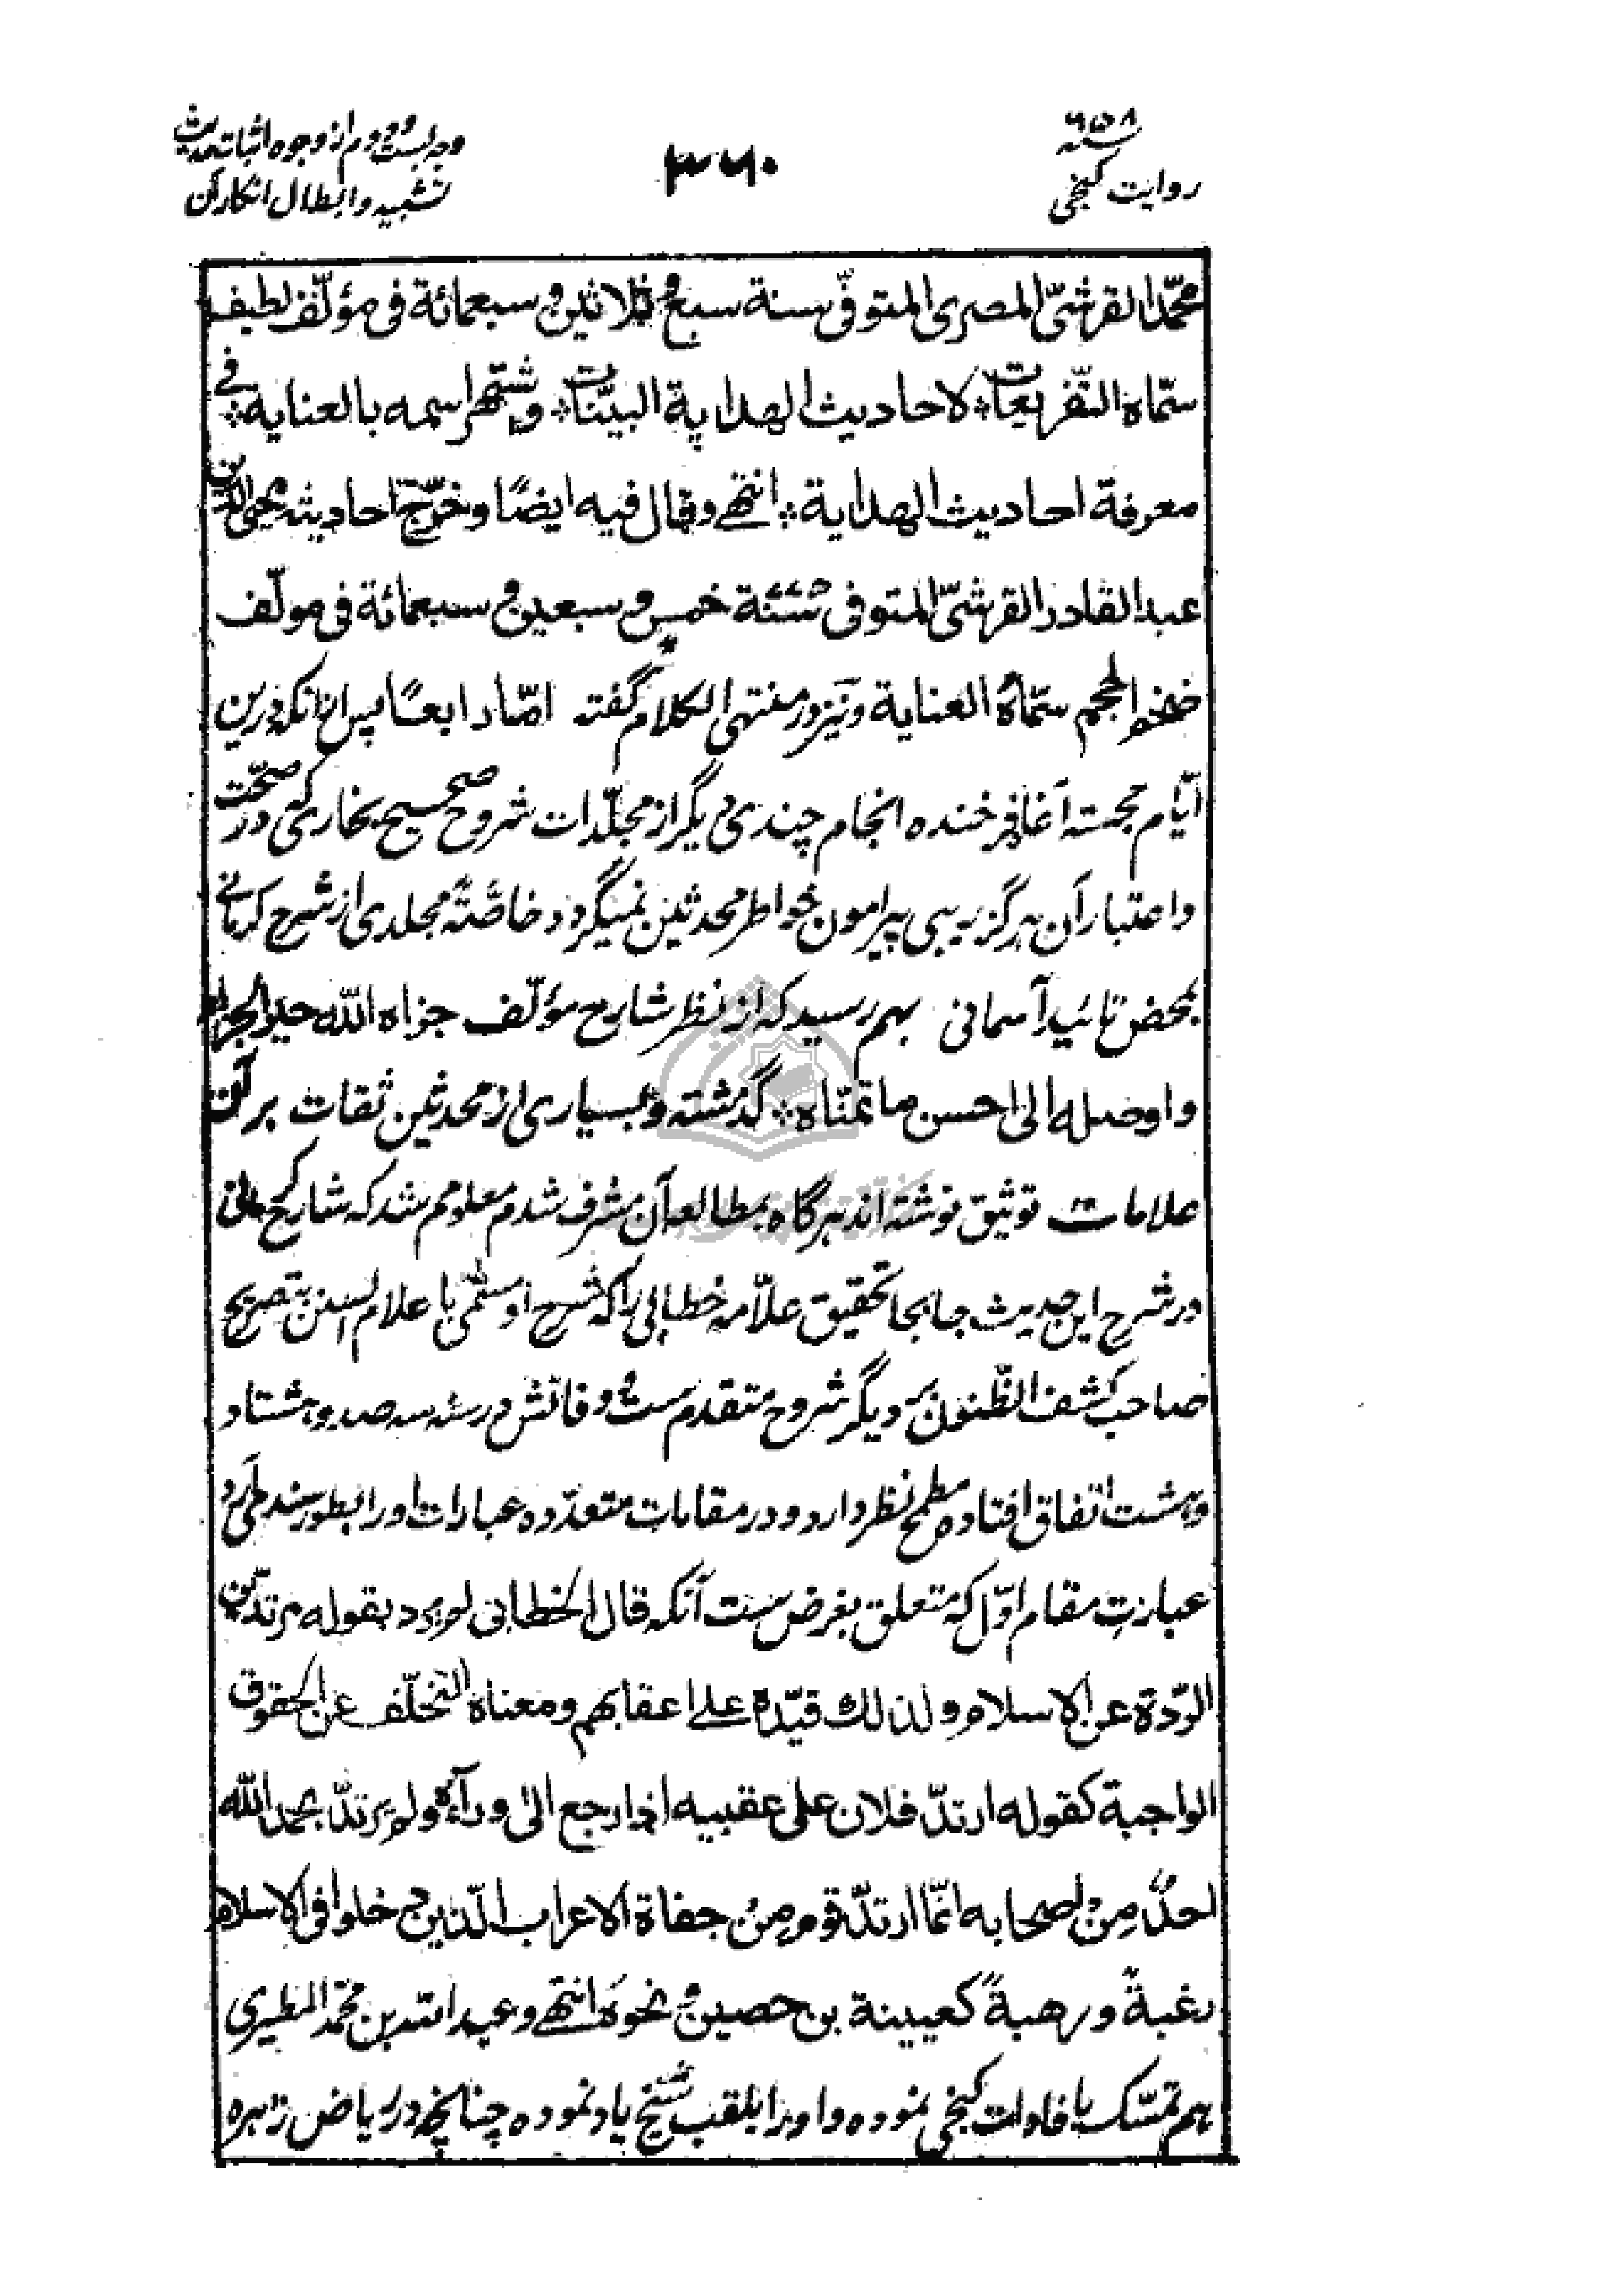 سنه ۶۵۸
روایت کنجی
۳۶۰
وجه بست و دوم از وجوه اثبات حدیث
تشبیه و ابطال انکار آن
محمّد القرشیّ المصری المتوفّی سنة سبع و ثلاثین و سبعمائة فی مؤلّف لطیف
سمّاه التفریعات لاحادیث الهدایة البیّنات و یشتهر اسمه بالعنایة فی
معرفة احادیث الهدایة انتهی و قال فیه ایضًا و خرّج احادیثه محیی الدین
عبد القادر القرشیّ المتوفی سنة خمس و سبعین و سبعمائة فی مولّف
ضخم الحجم سمّاهُ العنایة و نیز در منتهی الکلام گفته امّا رابعًا پس از انکه درین
ایّام خجسته آغاز فرخنده انجام چندی دیگر از مجلّدات شروح صحیح بخاری که در صحّت
و اعتبار آن هرگز ریبی پیرامون خواطر محدثین نمیگردد خاصّةً مجلدی از شرح کرمانی
بمحض تائید آسمانی بهم رسید که از نظر شارح مؤلّف جزاه اللّه خیر الجزاء
و اوصله الی احسن ما تمنّاه گذشته و بسیاری از محدثین ثقات بر آن
علامات توثیق نوشته اند هرگاه بمطالعه آن مشرف شدم معلومم شد که شارح کرمانی
در شرح این حدیث جابجا تحقیق علّامه خطابی را که شرح او مسمّی با علام السنن بتصریح
صاحب کشف الظّنون بر دیگر شروح متقدم ست و فاتش در سنه سه صد و هشتاد
و هشت اتفاق افتاده مطمح نظر دارد و در مقامات متعدّده عبارات او را بطور سند می آرد
عبارتِ مقام اوّل که متعلق بغرض ست آنکه قال الخطابی لم یرد بقوله مرتدّین
الرّدة عن الاسلام و لذلك قیّده علی اعقابهم و معناه التخلّف عن الحقوق
الواجبة کقوله ارتدّ فلان علی عقبیه اذا رجع الی ورآءه و لم یرتدّ بحمد اللّه
احدٌ مِنْ اصحابه انّما ارتدّ قوم مِنْ جفاة الاعراب الّذین دخلوا فی الاسلام
رغبةً و رهبةً کعیینة بن حصین و نحوه انتهی و عبد اللّه بن محمّد المطیری
هم تمسّک بافادات کنجی نموده و او را بلقب شیخ یاد نموده چنانچه در ریاض زهره